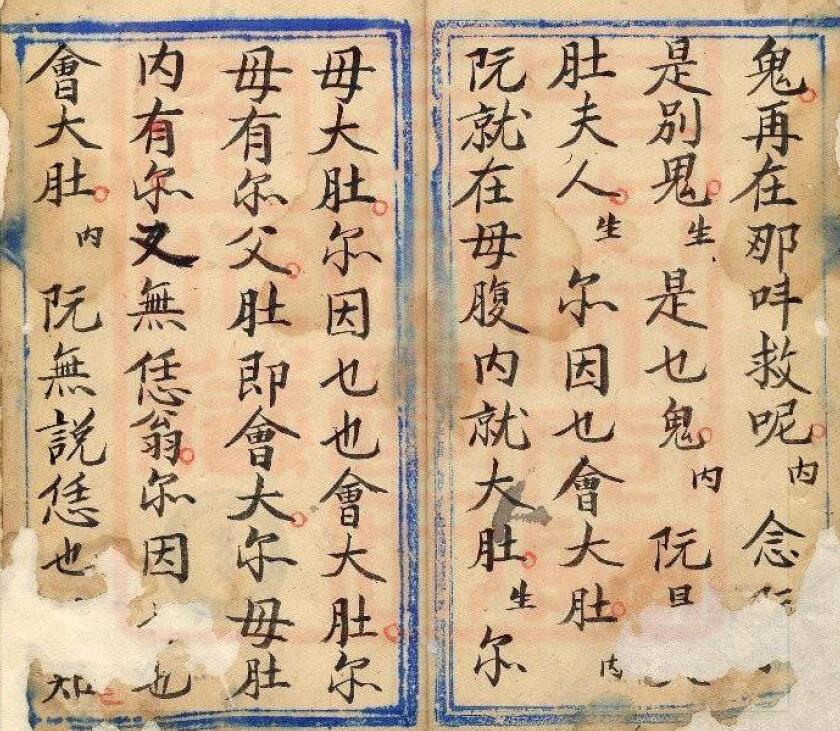 鬼再在那吽救呢内念
是別鬼生是乜鬼内阮
肚夫人生尔因乜會大肚内
阮就在母腹内就大肚生尔
母大肚尔因乜也會大肚尔
母有尔父肚即會大尔母肚
内有尔又無恁翁尔因也
會大肚内阮無説恁也知